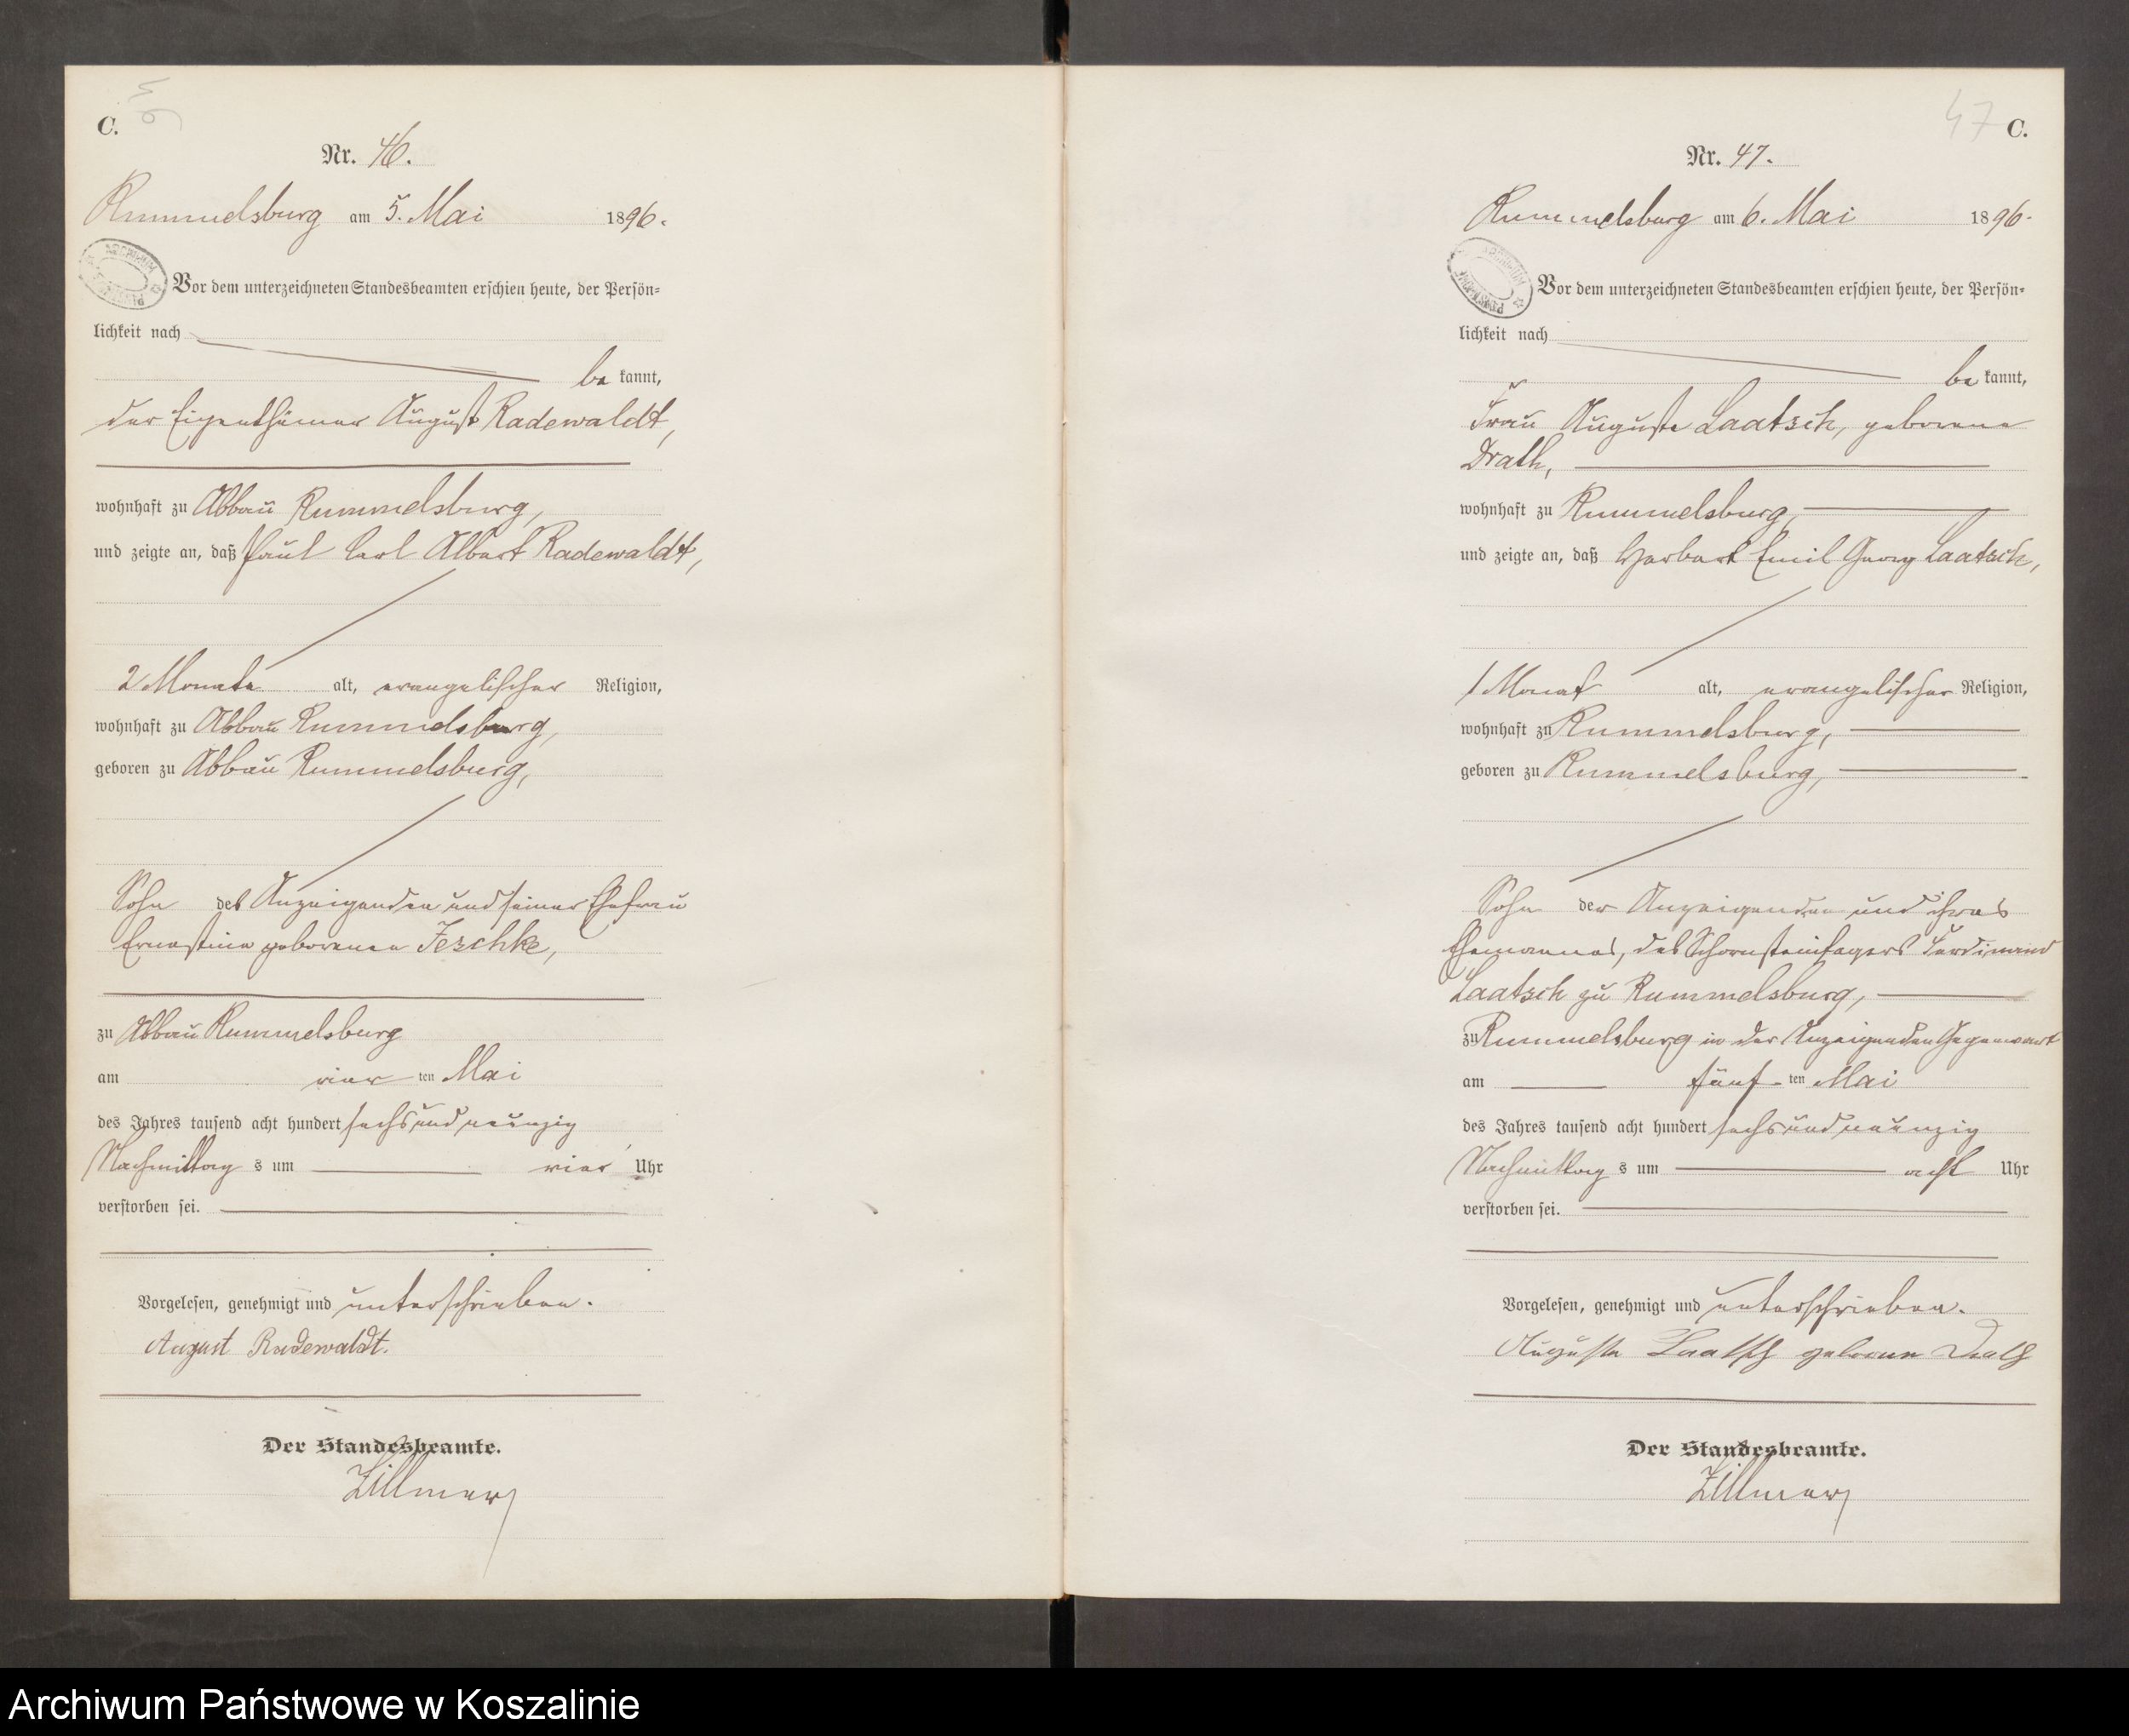 C.
Nr. 46.
Rummelsburg am 5. Mai 1896.
Vor dem unterzeichneten Standesbeamten erschien heute, der Persön-
lichkeit nach
be kannt,
der Eigenthümer August Radewaldt,
wohnhaft zu Abbau Rummelsburg,
und zeigte an, daß Paul Carl Albert Radewaldt,
2 Monate alt, evangelischer Religion,
wohnhaft zu Abbau Rummelsburg,
geboren zu Abbau Rummelsburg,
Sohn des Anzeigenden und seiner Ehefrau
Ernestine geborenen Jeschke,
zu Abbau Rummelsburg
am vier ten Mai
des Jahres tausend acht hundert sechs und neunzig
Nachmittag s um vier Uhr
verstorben sei.
Vorgelesen, genehmigt und unterschrieben.
August Radewaldt.
Der Standesbeamte.
Zillmer
47 C.
Nr. 47.
Rummelsburg am 6. Mai 1896.
Vor dem unterzeichneten Standesbeamten erschien heute, der Persön-
lichkeit nach
be kannt,
Frau Auguste Laatsch, geborene
Drath,
wohnhaft zu Rummelsburg,
und zeigte an, daß Herbert Emil Georg Laatsch,
1 Monat alt, evangelischer Religion,
wohnhaft zu Rummelsburg,
geboren zu Rummelsburg,
Sohn der Anzeigenden und ihres
Ehemannes, des Schornsteinfegers Ferdinand
Laatsch zu Rummelsburg,
zu Rummelsburg in der Anzeigenden Gegenwart
am fünf ten Mai
des Jahres tausend acht hundert sechs und neunzig
Nachmittag s um acht Uhr
verstorben sei.
Vorgelesen, genehmigt und unterschrieben.
Auguste Laatsch geboren Drath
Der Standesbeamte.
Zillmer
Archiwum Państwowe w Koszalinie